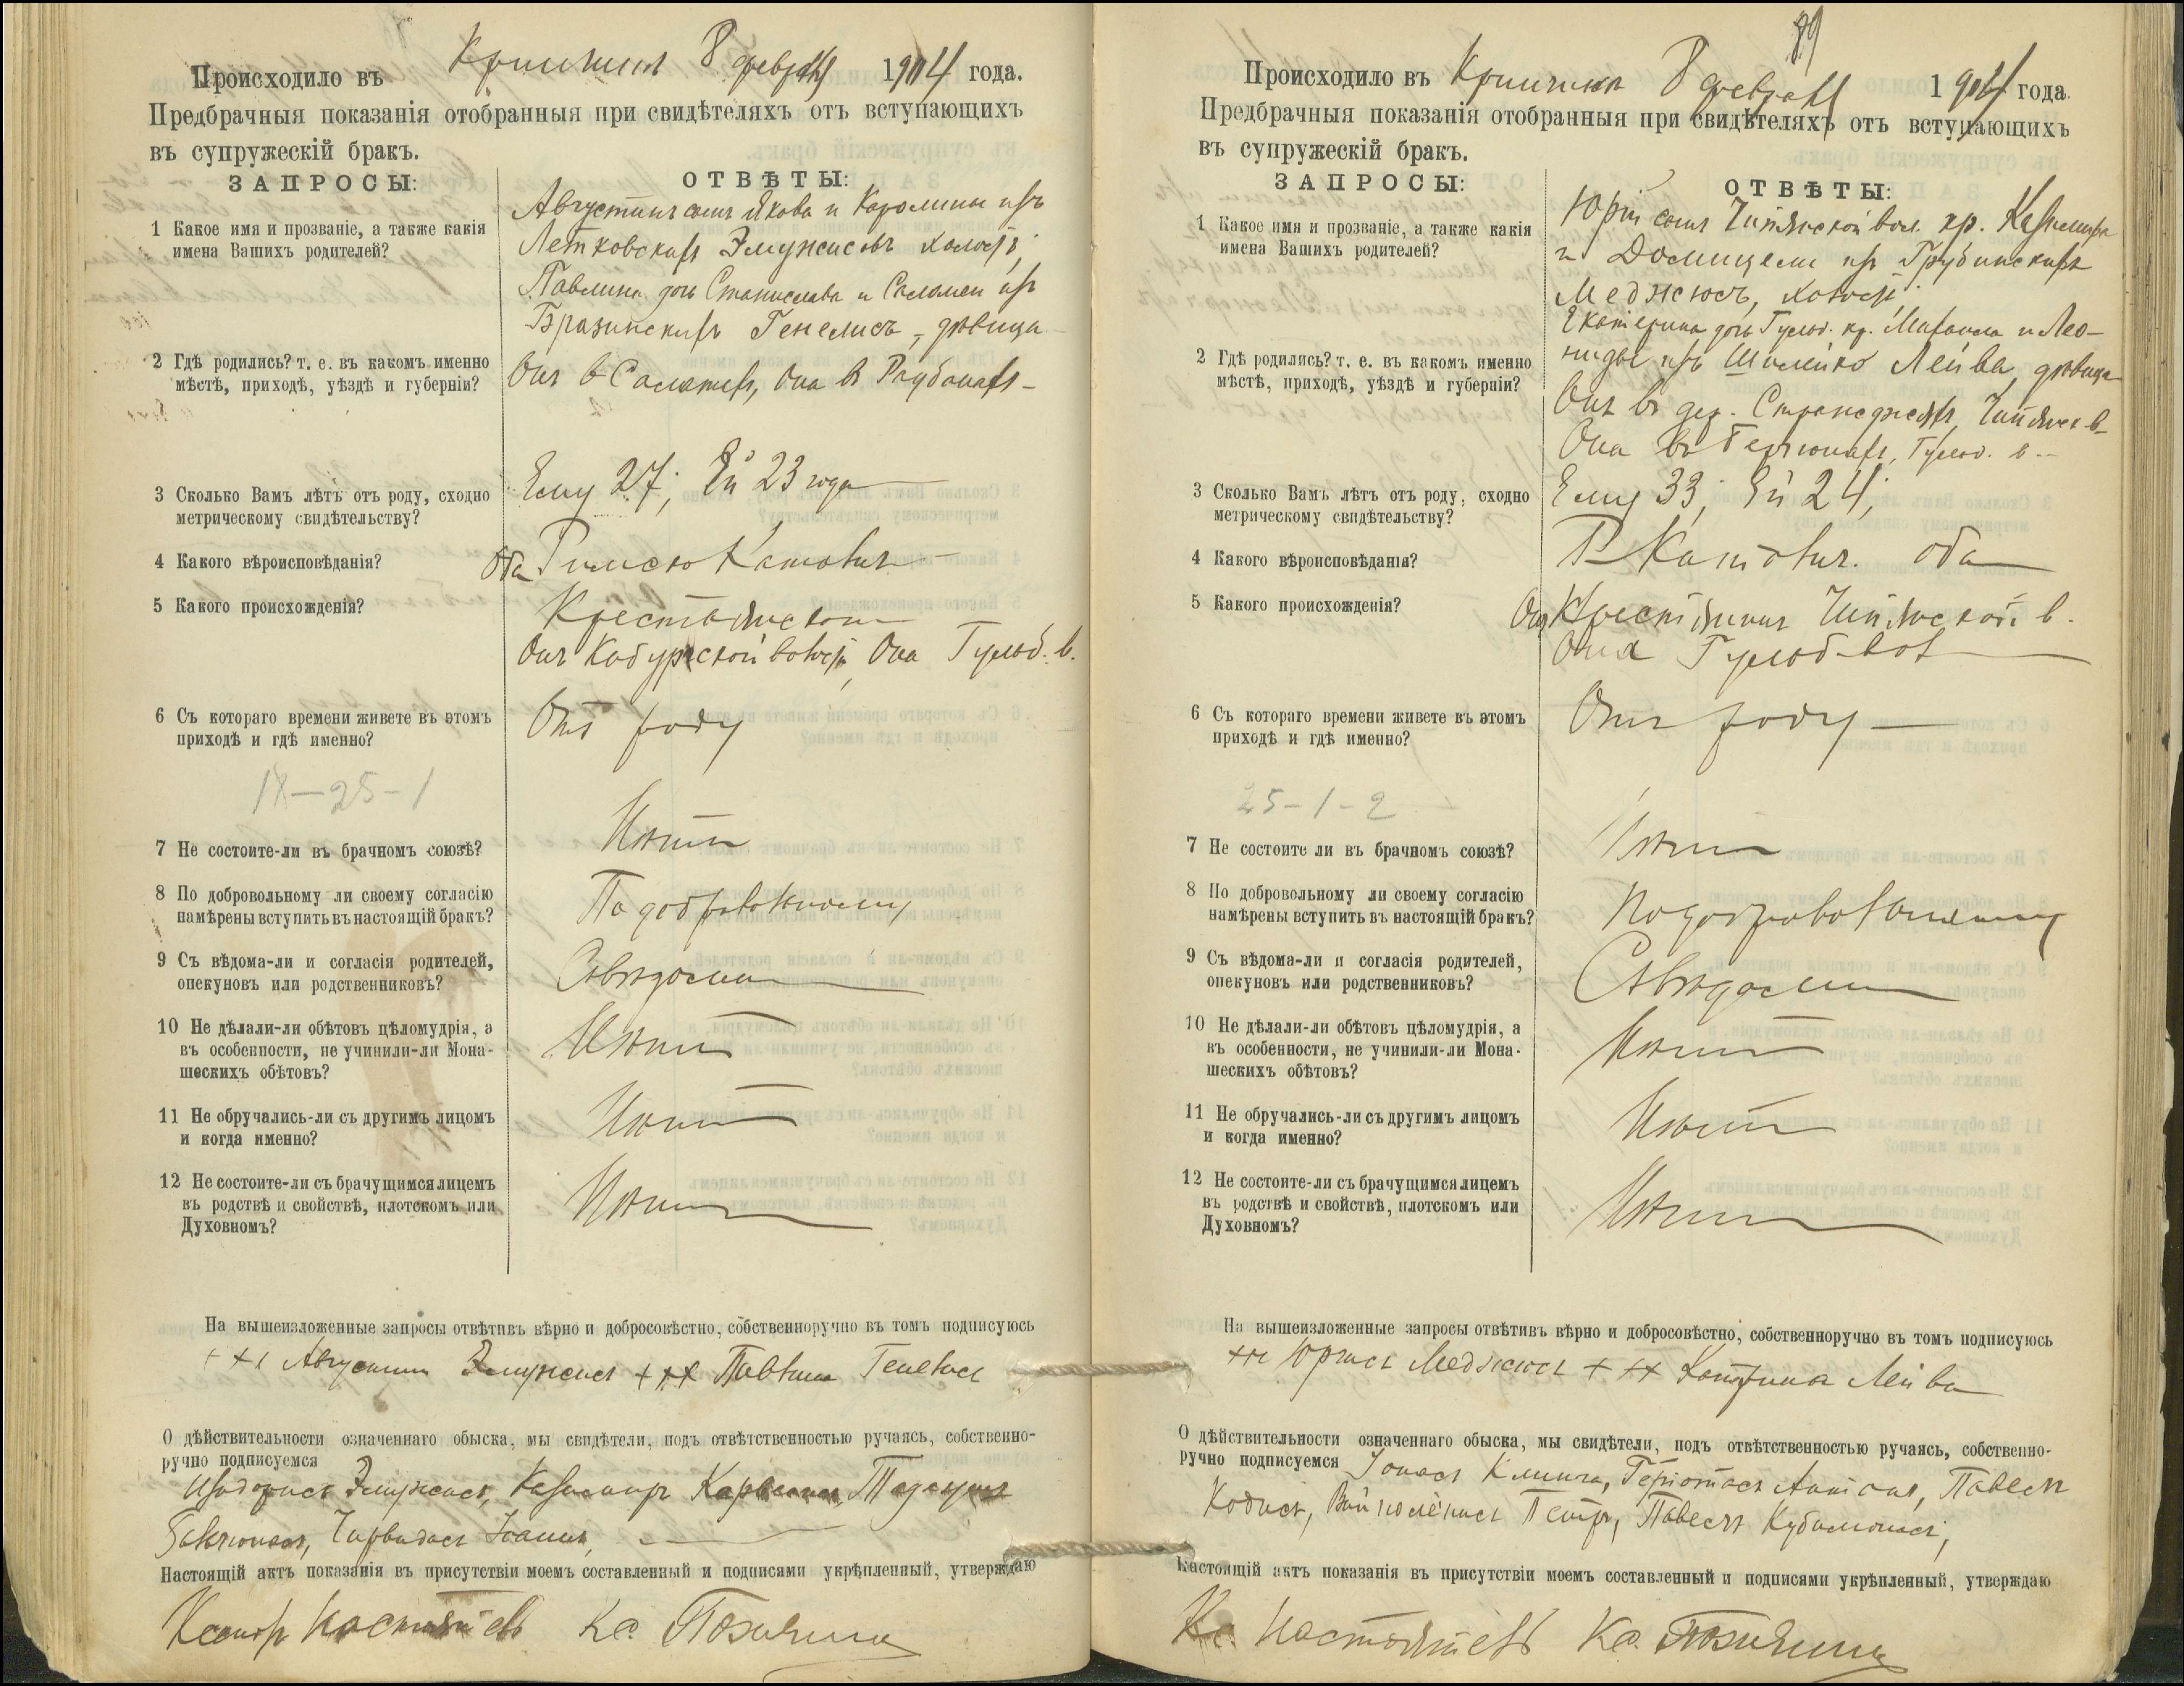 Происходило въ Криукшт 8 февраля 1904 года.
Предбрачныя показанія отобранныя при свидѣтеляхъ отъ вступающихъ
въ супружескій бракъ.
ЗАПРОСЫ: ОТВѢТЫ:
1 Какое имя и прозваніе, а также какія
имена Вашихъ родителей?
Августинъ сынъ Якова и Каролины изъ
Летковскихъ Элмужисовъ холостъ,
Павлина дочь Станислава и Саломеи изъ
Бразинскихъ Генелисъ, дѣвица
2 Гдѣ родились? т. е. въ какомъ именно
мѣстѣ, приходѣ, уѣздѣ и губерніи?
Онъ в Салатихъ, Она въ Раубанахъ
3 Сколько Вамъ лѣтъ отъ роду, сходно
метрическому свидѣтельству?
Ему 27; Ей 23 года
4 Какого вѣроисповѣданія?
Оба Римско Католич.
5 Какого происхожденія?
Крестьянскаго
Онъ Кабурской волости, Она Гульб. в.
6 Съ котораго времени живете въ этомъ
приходѣ и гдѣ именно?
Отъ роду
IX-25-1
7 Не состоите-ли въ брачномъ союзѣ?
Нѣтъ
8 По добровольному ли своему согласію
намѣрены вступить въ настоящій бракъ?
По добровольному
9 Съ вѣдома-ли и согласія родителей,
опекуновъ или родственниковъ?
Съ вѣдома
10 Не дѣлали-ли обѣтовъ цѣломудрія, а
въ особенности, не учинили-ли Мона-
шескихъ обѣтовъ?
Нѣтъ
11 Не обручались-ли съ другимъ лицомъ
и когда именно?
Нѣтъ
12 Не состоите-ли съ брачущимся лицемъ
въ родствѣ и свойствѣ, плотскомъ или
Духовномъ?
Нѣтъ
На вышеизложенные запросы отвѣтивъ вѣрно и добросовѣстно, собственноручно въ томъ подписуюсь
+++ Августин Элмужисъ +++ Павлина Генелисъ
О дѣйствительности означеннаго обыска, мы свидѣтели, подъ отвѣтственностью ручаясь, собственно-
ручно подписуемся
Изидорисъ Элмужисъ, Казимиръ
Настоящій актъ показанія въ присутствіи моемъ составленный и подписями укрѣпленный, утверждаю
Настоятель Кс.
89
Происходило въ 8 февраля 1904 года.
Предбрачныя показанія отобранныя при свидѣтеляхъ отъ вступающихъ
въ супружескій бракъ.
ЗАПРОСЫ: ОТВѢТЫ:
1 Какое имя и прозваніе, а также какія
имена Вашихъ родителей?
Юрій сынъ вол. кр. Казимира
и Домицели изъ Грубинскихъ
Меджюсъ, холостъ;
Екатерина дочь Гульб. кр. Михаила и Лео-
ниды изъ Шимейко Лейва, дѣвица
2 Гдѣ родились? т. е. въ какомъ именно
мѣстѣ, приходѣ, уѣздѣ и губерніи?
Онъ въ дер.
Она въ Гульб. в.
3 Сколько Вамъ лѣтъ отъ роду, сходно
метрическому свидѣтельству?
Ему 33; Ей 24;
4 Какого вѣроисповѣданія?
Р Католич. оба
5 Какого происхожденія?
Онъ Крестьянинъ в.
Она Гульб-вол
6 Съ котораго времени живете въ этомъ
приходѣ и гдѣ именно?
Отъ роду
25-1-2
7 Не состоите ли въ брачномъ союзѣ?
Нѣтъ
8 По добровольному ли своему согласію
намѣрены вступить въ настоящій бракъ?
По добровольному
9 Съ вѣдома-ли и согласія родителей,
опекуновъ или родственниковъ?
Съ вѣдома
10 Не дѣлали-ли обѣтовъ цѣломудрія, а
въ особенности, не учинили-ли Мона-
шескихъ обѣтовъ?
Нѣтъ
11 Не обручались-ли съ другимъ лицомъ
и когда именно?
Нѣтъ
12 Не состоите-ли съ брачущимся лицемъ
въ родствѣ и свойствѣ, плотскомъ или
Духовномъ?
Нѣтъ
На вышеизложенные запросы отвѣтивъ вѣрно и добросовѣстно, собственноручно въ томъ подписуюсь
+++ Юргисъ Меджюсъ +++ Лейва
О дѣйствительности означеннаго обыска, мы свидѣтели, подъ отвѣтственностью ручаясь, собственно-
ручно подписуемся Іонасъ
Петръ,
Настоящій актъ показанія въ присутствіи моемъ составленный и подписями укрѣпленный, утверждаю
Кс. Настоятель Кс.